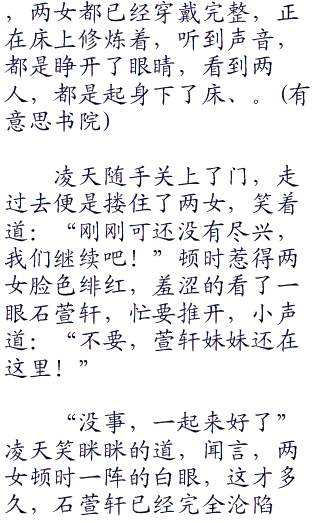 ，两女都已经穿戴完整，正
在床上修炼着，听到声音，
都是睁开了眼睛，看到两
人，都是起身下了床、。(有
意思书院)
凌天随手关上了门，走
过去便是搂住了两女，笑着
道：“刚刚可还没有尽兴，
我们继续吧！”顿时惹得两
女脸色绯红，羞涩的看了一
眼石萱轩，忙要推开，小声
道：“不要，萱轩妹妹还在
这里！”
“没事，一起来好了”
凌天笑眯眯的道，闻言，两
女顿时一阵的白眼，这才多
久，石萱轩已经完全沦陷